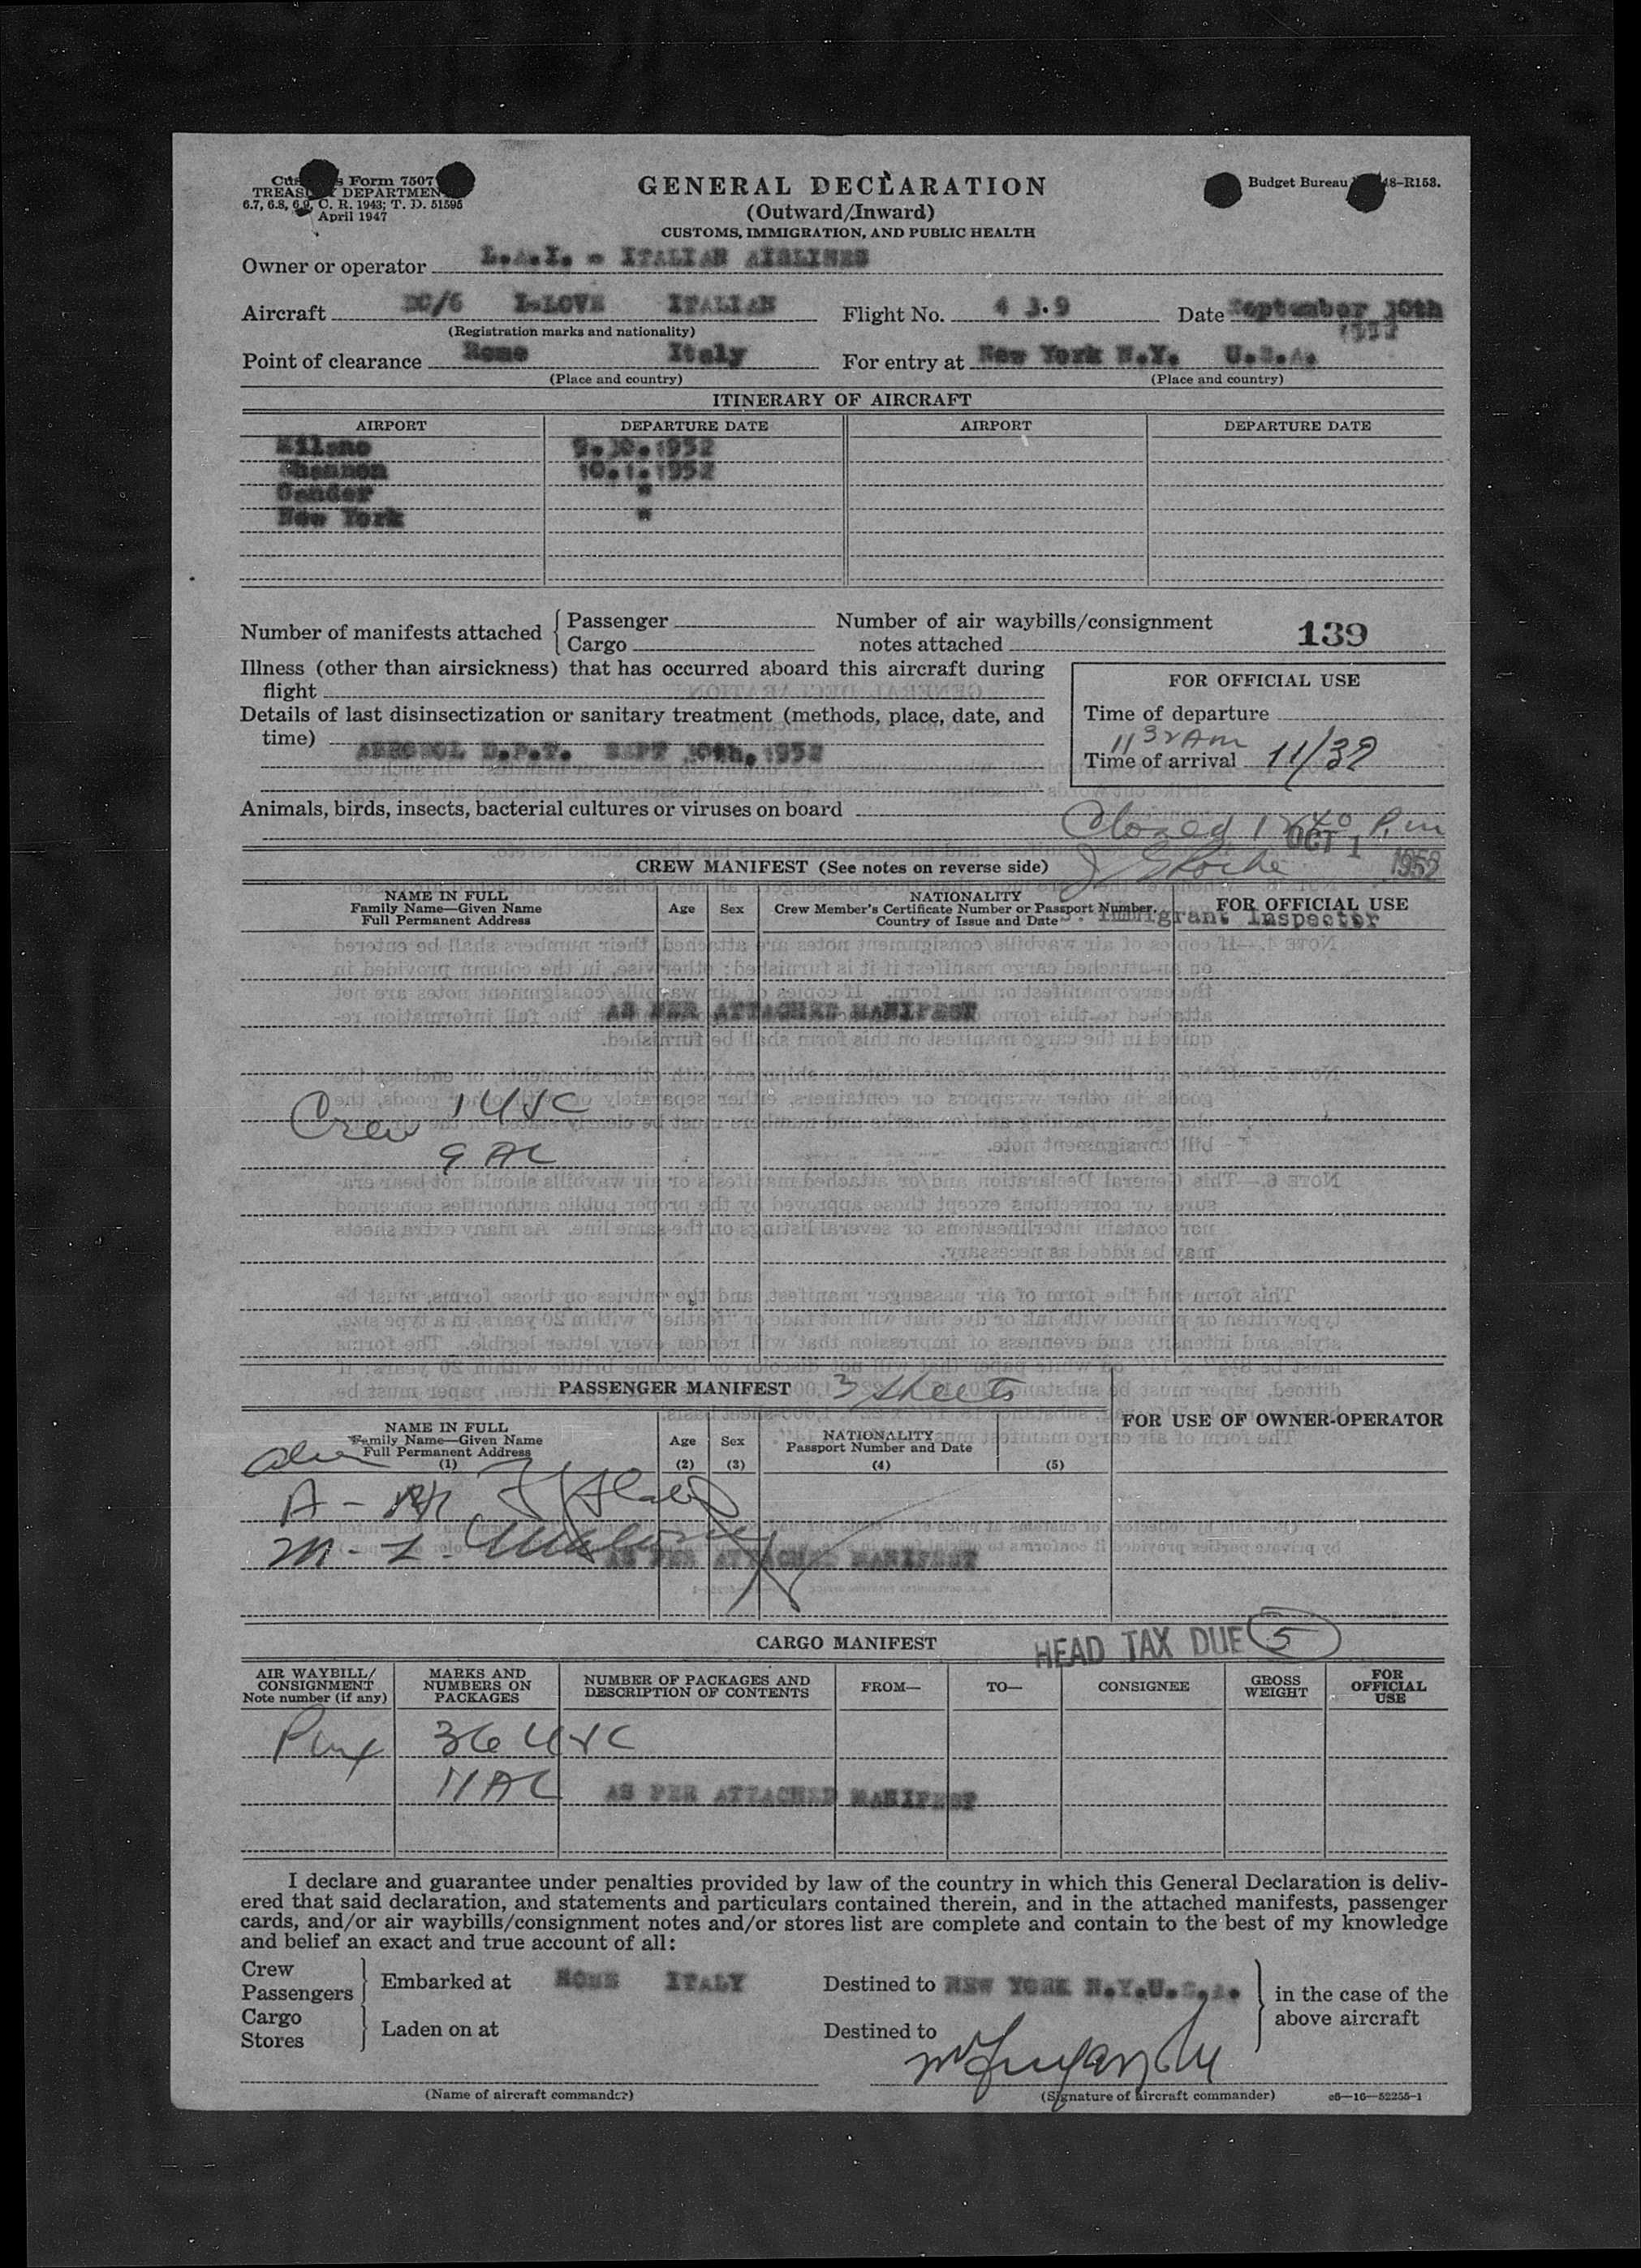 Customs Form 7507
TREASURY DEPARTMENT
6.7, 6.8, 6.9, C. R. 1943; T. D. 51595
April 1947
GENERAL DECLARATION
(Outward/Inward)
CUSTOMS, IMMIGRATION, AND PUBLIC HEALTH
Budget Bureau 48-R153.
Owner or operator L.A.I. - ITALIAN AIRLINES
Aircraft DC/6 I-LOVE ITALIAN Flight No. 4 3.9 Date September 30th
1952
(Registration marks and nationality)
Point of clearance Rome Italy For entry at New York N.Y. U.S.A.
(Place and country) (Place and country)
ITINERARY OF AIRCRAFT
AIRPORT DEPARTURE DATE AIRPORT DEPARTURE DATE
Milano 9.30.1952
Shannon 10.1.1952
Gander "
New York "
Number of manifests attached { Passenger
Cargo
Number of air waybills/consignment
notes attached 139
Illness (other than airsickness) that has occurred aboard this aircraft during
flight
Details of last disinsectization or sanitary treatment (methods, place, date, and
time)
AEROSOL D.P.T. SEPT 30th, 1952
FOR OFFICIAL USE
Time of departure
11 32 AM
Time of arrival 11/32
Animals, birds, insects, bacterial cultures or viruses on board
Closed 1240 P.m
OCT 1 1952
CREW MANIFEST (See notes on reverse side)
Immigrant Inspector
NAME IN FULL
Family Name—Given Name
Full Permanent Address
Age Sex
NATIONALITY
Crew Member's Certificate Number or Passport Number.
Country of Issue and Date
FOR OFFICIAL USE
AS PER ATTACHED MANIFEST
Crew 1 USC
9 AL
PASSENGER MANIFEST 3 sheets
FOR USE OF OWNER-OPERATOR
NAME IN FULL
Family Name—Given Name
Full Permanent Address
(1)
Age
(2)
Sex
(3)
NATIONALITY
Passport Number and Date
(4) (5)
AS PER ATTACHED MANIFEST
CARGO MANIFEST
HEAD TAX DUE 5
AIR WAYBILL/
CONSIGNMENT
Note number (if any)
MARKS AND
NUMBERS ON
PACKAGES
NUMBER OF PACKAGES AND
DESCRIPTION OF CONTENTS
FROM— TO— CONSIGNEE
GROSS
WEIGHT
FOR
OFFICIAL
USE
36 USC
11 AL
AS PER ATTACHED MANIFEST
I declare and guarantee under penalties provided by law of the country in which this General Declaration is deliv-
ered that said declaration, and statements and particulars contained therein, and in the attached manifests, passenger
cards, and/or air waybills/consignment notes and/or stores list are complete and contain to the best of my knowledge
and belief an exact and true account of all:
Crew
Passengers } Embarked at ROME ITALY Destined to NEW YORK N.Y.U.S.A.
Cargo
Stores } Laden on at Destined to
in the case of the
above aircraft
(Name of aircraft commander) (Signature of aircraft commander) c6—16—52255-1